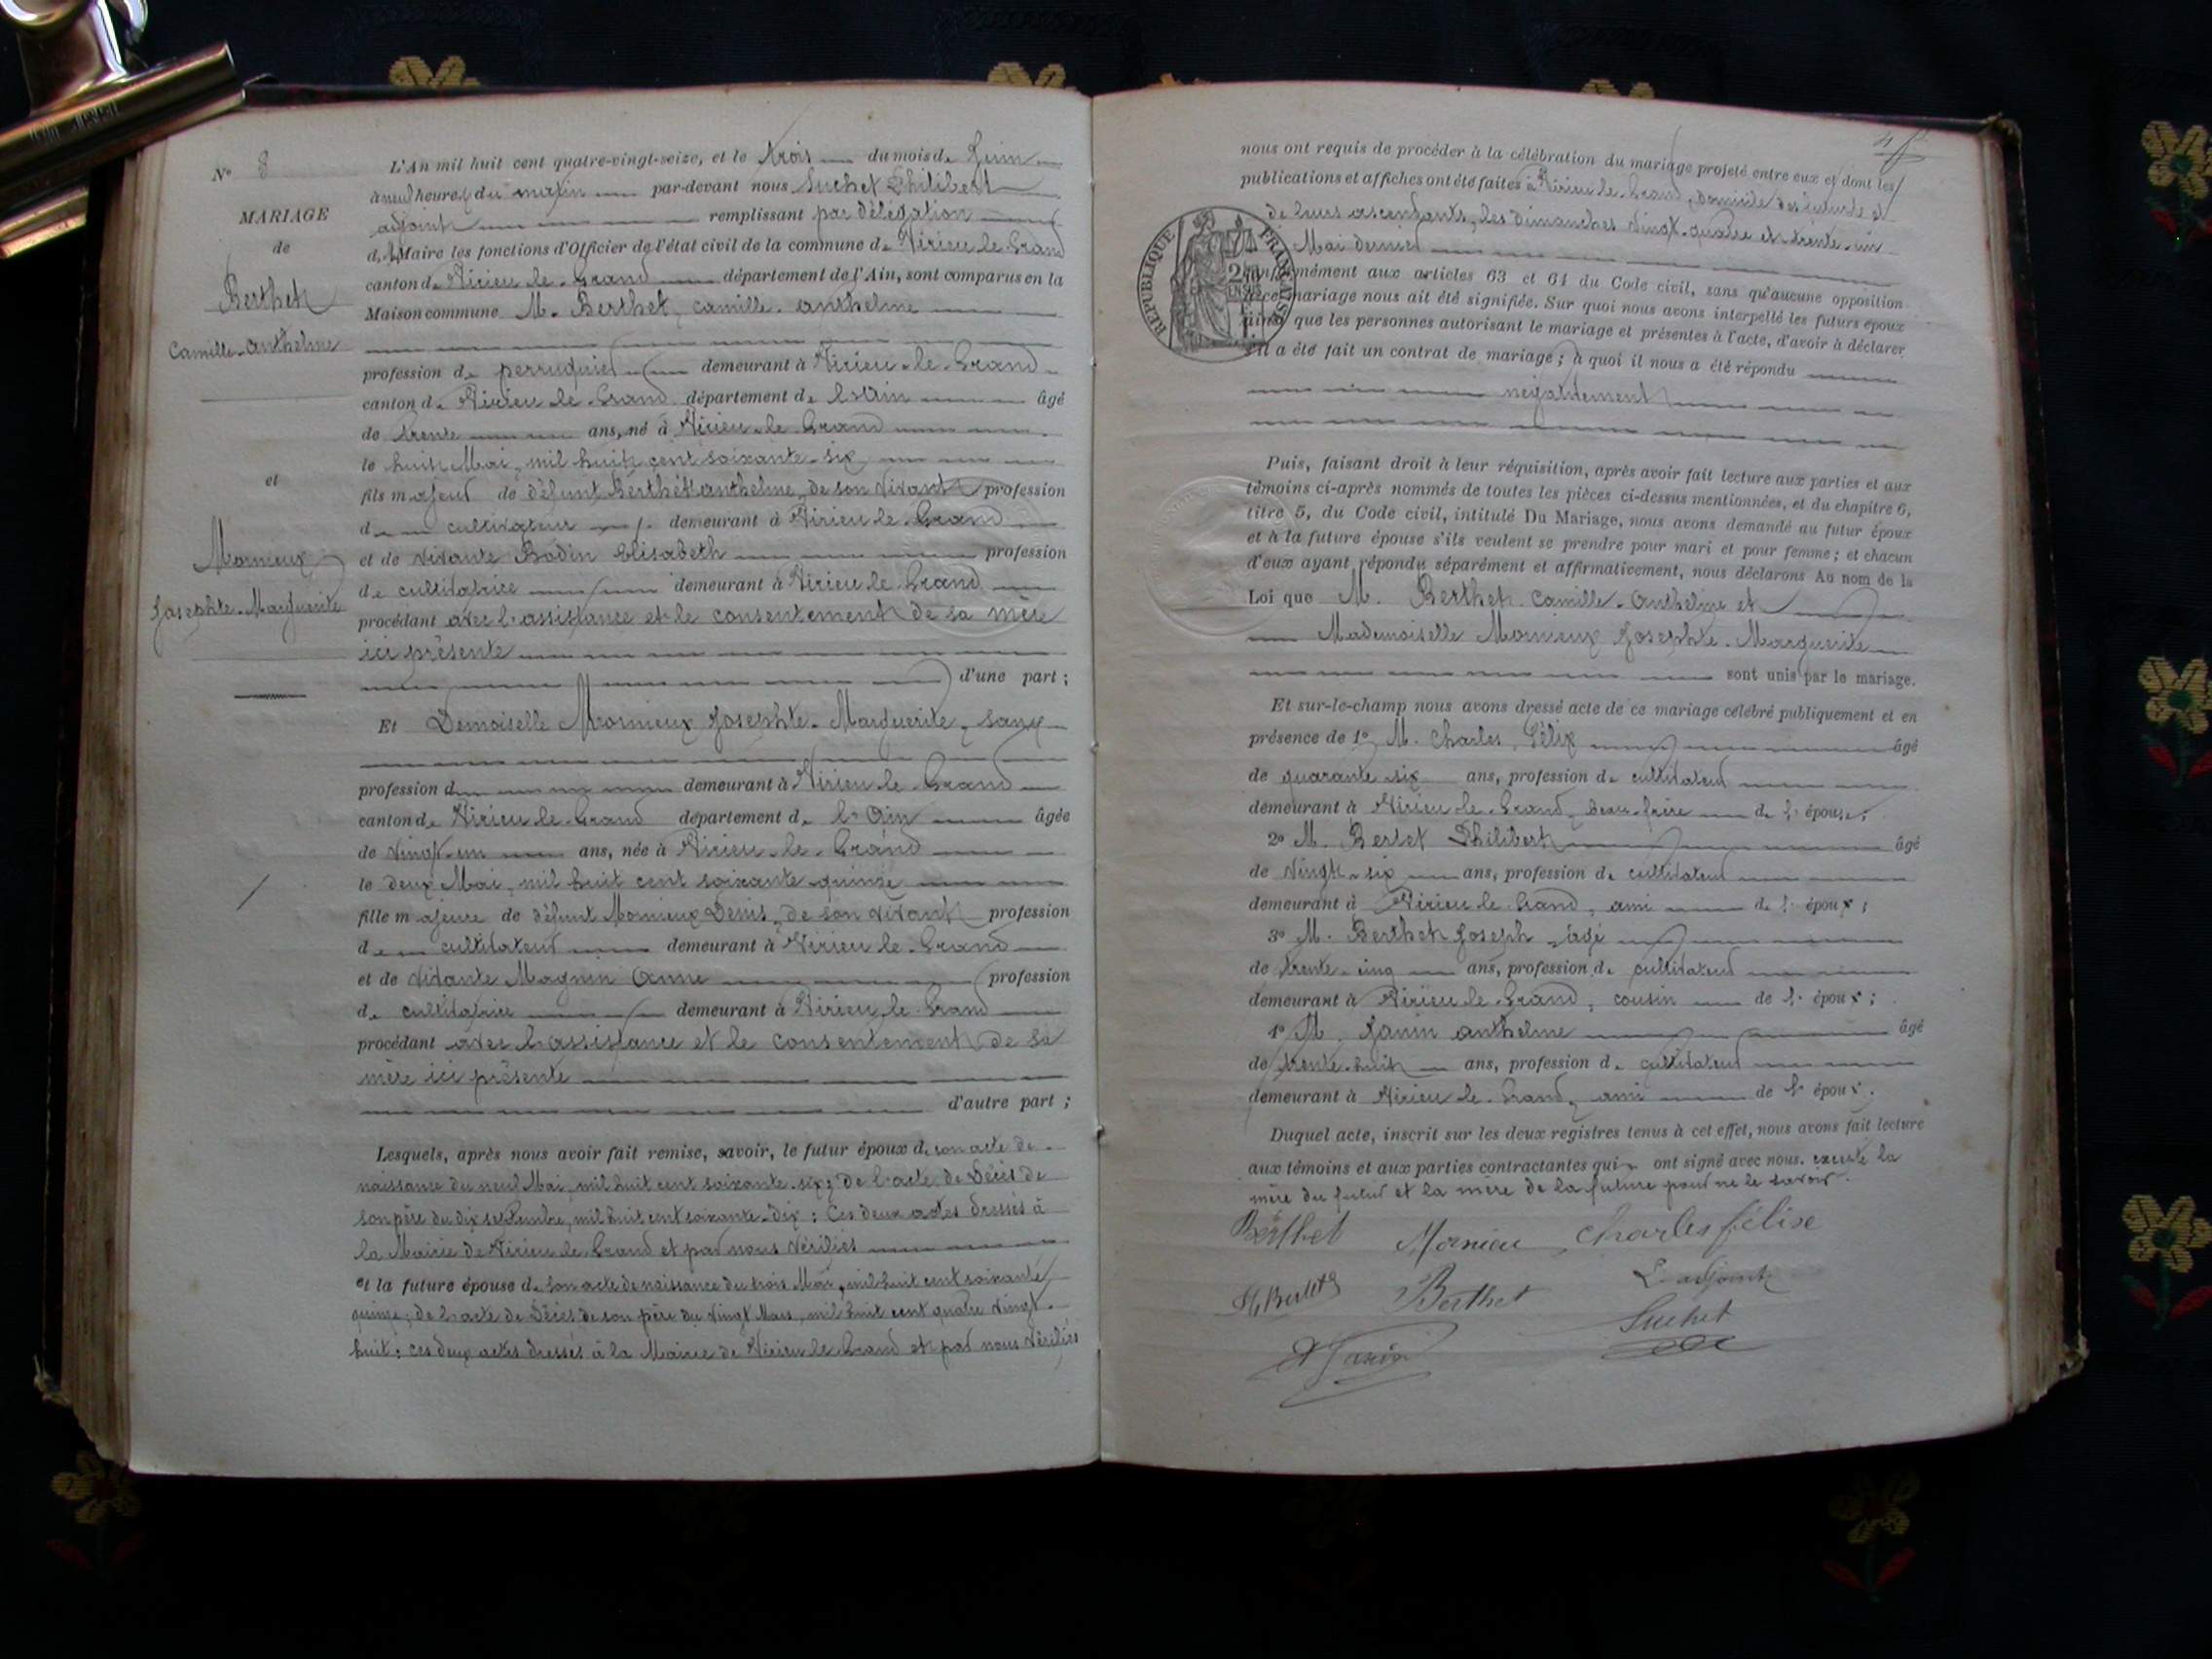 N° 8
MARIAGE
de
Berthet
Camille-Anthelme
et
Monieux
Josephte-Marguerite
L'An mil huit cent quatre-vingt-seize, et le trois du mois de Juin
à neuf heures du matin par-devant nous Suchet Philibert
adjoint remplissant par délégation
du Maire les fonctions d'Officier de l'état civil de la commune de Virieu-le-Grand
canton de Virieu-le-Grand département de l'Ain, sont comparus en la
Maison commune M. Berthet, Camille-Anthelme
profession de perruquier demeurant à Virieu-le-Grand
canton de Virieu-le-Grand département de l'Ain âgé
de trente ans, né à Virieu-le-Grand
le huit Mai, mil huit cent soixante-six
fils majeur de défunt Berthet Anthelme, de son vivant profession
de cultivateur demeurant à Virieu-le-Grand
et de vivante Bodin Elisabeth profession
de cultivatrice demeurant à Virieu-le-Grand
procédant avec l'assistance et le consentement de sa mère
ici présente
d'une part ;
Et Demoiselle Monieux Josephte-Marguerite, sans
profession d demeurant à Virieu-le-Grand
canton de Virieu-le-Grand département de l'Ain âgée
de vingt-un ans, née à Virieu-le-Grand
le deux Mai, mil huit cent soixante-quinze
fille majeure de défunt Monieux Denis, de son vivant profession
de cultivateur demeurant à Virieu-le-Grand
et de vivante Magnin Anne profession
de cultivatrice demeurant à Virieu-le-Grand
procédant avec l'assistance et le consentement de sa
mère ici présente
d'autre part ;
Lesquels, après nous avoir fait remise, savoir, le futur époux de son acte de
naissance du neuf Mai, mil huit cent soixante-six; de l'acte de Décès de
son père du dix septembre, mil huit cent soixante-dix : Ces deux actes dressés à
la Mairie de Virieu-le-Grand et par nous vérifiés
et la future épouse de son acte de naissance du trois Mai, mil huit cent soixante
quinze; de l'acte de Décès de son père du vingt Mars, mil huit cent quatre vingt-
huit : ces deux actes dressés à la Mairie de Virieu le Grand et par nous vérifiés
nous ont requis de procéder à la célébration du mariage projeté entre eux et dont les
publications et affiches ont été faites à Virieu-le-Grand, domicile des futurs et
de leurs ascendants, les dimanches vingt-quatre et trente-un
Mai dernier
RÉPUBLIQUE FRANÇAISE
conformément aux articles 63 et 64 du Code civil, sans qu'aucune opposition
à ce mariage nous ait été signifiée. Sur quoi nous avons interpellé les futurs époux
ainsi que les personnes autorisant le mariage et présentes à l'acte, d'avoir à déclarer
s'il a été fait un contrat de mariage ; à quoi il nous a été répondu
négativement
Puis, faisant droit à leur réquisition, après avoir fait lecture aux parties et aux
témoins ci-après nommés de toutes les pièces ci-dessus mentionnées, et du chapitre 6,
titre 5, du Code civil, intitulé Du Mariage, nous avons demandé au futur époux
et à la future épouse s'ils veulent se prendre pour mari et pour femme ; et chacun
d'eux ayant répondu séparément et affirmativement, nous déclarons Au nom de la
Loi que M. Berthet Camille-Anthelme et
Mademoiselle Monieux Josephte-Marguerite
sont unis par le mariage.
Et sur-le-champ nous avons dressé acte de ce mariage célébré publiquement et en
présence de 1° M. Charles, Félix âgé
de quarante-six ans, profession de cultivateur
demeurant à Virieu-le-Grand, beau-frère de l'épouse;
2° M. Berlet Philibert âgé
de vingt-six ans, profession de cultivateur
demeurant à Virieu-le-Grand, ami de l'époux ;
3° M. Berthet Joseph âgé
de trente-cinq ans, profession de cultivateur
demeurant à Virieu-le-Grand, cousin de l'époux ;
4° M. Janin Anthelme âgé
de trente-huit ans, profession de cultivateur
demeurant à Virieu-le-Grand, ami de l'époux.
Duquel acte, inscrit sur les deux registres tenus à cet effet, nous avons fait lecture
aux témoins et aux parties contractantes qui ont signé avec nous. excepté la
mère du futur et la mère de la future pour ne le savoir.
Berthet Monieu Charles félise
Berlet Berthet L'adjoint
Suchet
Janin